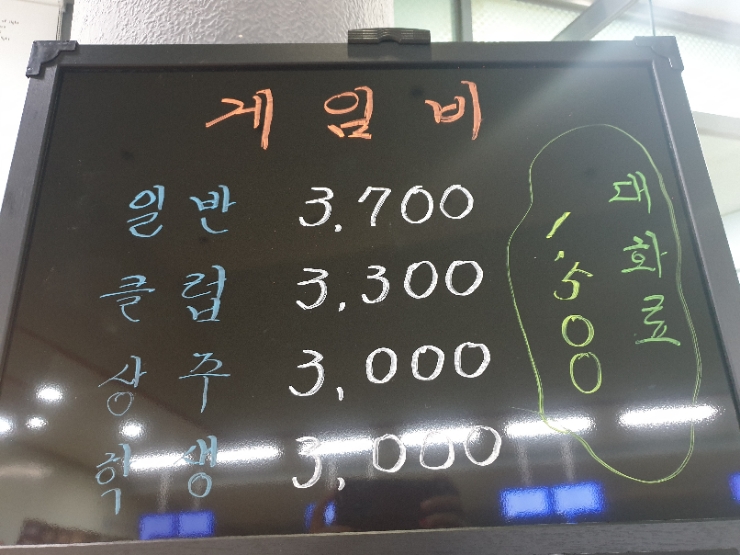 게임비
일반 3,700
클럽 3,300
상주 3,000
학생 3,000
대화료
1,500